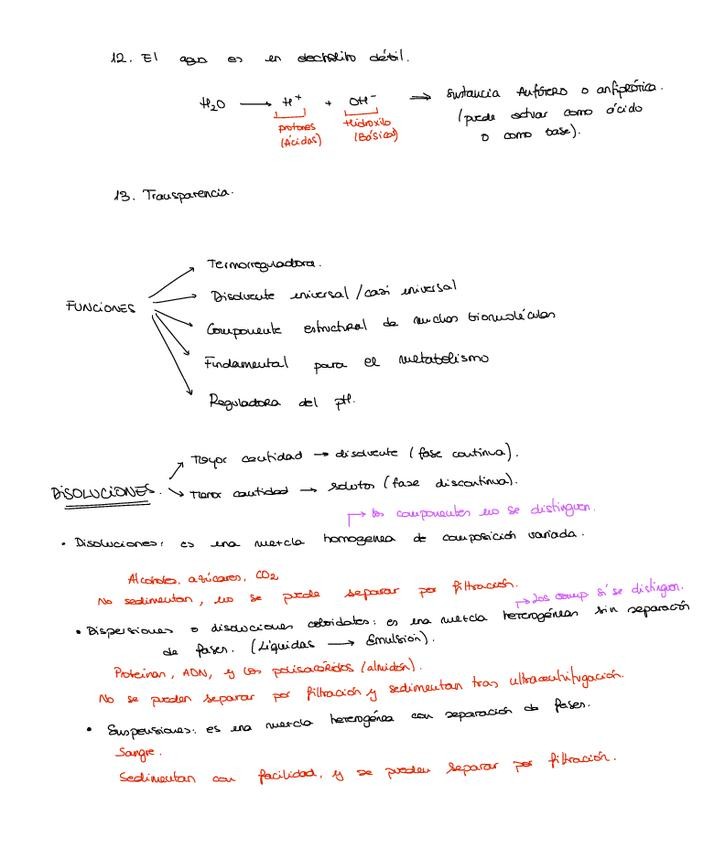 12. El agua es un electrolito débil.
H₂O → H⁺ + OH⁻ ⇒ Sustancia Anfótero o anfiprótica.
protones Hidroxilo (puede actuar como ácido
(Ácidas) (Básico) o como base).
13. Transparencia.
Termorreguladora.
Disolvente universal / casi universal
FUNCIONES
Componente estructural de muchas biomoléculas
Fundamental para el metabolismo
Reguladora del pH.
Mayor cantidad → disolvente (fase continua).
DISOLUCIONES.
Menor cantidad → solutos (fase discontinua).
los componentes no se distinguen.
• Disoluciones: es una mezcla homogénea de composición variada.
Alcoholes, azúcares, CO₂
No sedimentan, no se puede separar por filtración.
Los comp sí se distinguen.
• Dispersiones o disoluciones coloidales: es una mezcla heterogéneas sin separación
de fases. (Líquidas → Emulsión).
Proteínas, ADN, y los polisacáridos (almidón).
No se pueden separar por filtración y sedimentan tras ultracentrifugación.
• Suspensiones: es una mezcla heterogénea con separación de fases.
Sangre.
Sedimentan con facilidad, y se pueden separar por filtración.